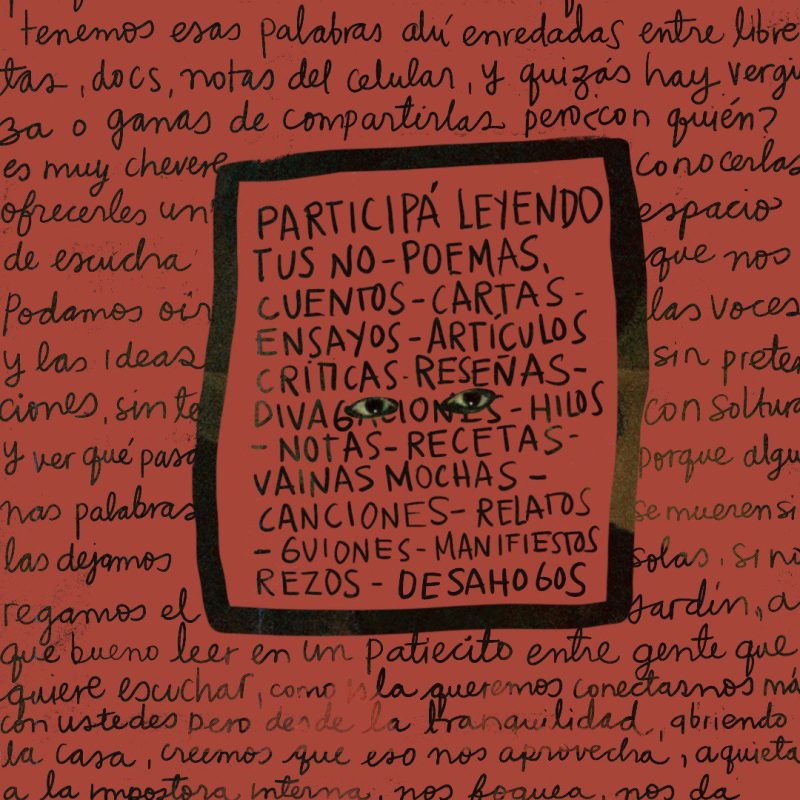 tenemos esas palabras ahí enredadas entre libre
tas, docs, notas del celular, y quizás hay vergü
za o ganas de compartirlas pero ¿con quién?
es muy chevere conocerlas
ofrecerles un espacio
de escucha que nos
Podamos oir las voces
y las ideas sin preten
ciones, sin te con soltura
y ver qué pasa porque algu
nas palabras se mueren si
las dejamos solas. si no
regamos el jardín, a
PARTICIPÁ LEYENDO
TUS NO-POEMAS,
CUENTOS-CARTAS-
ENSAYOS-ARTÍCULOS
CRÍTICAS-RESEÑAS-
DIVAGACIONES-HILOS
-NOTAS-RECETAS-
VAINAS MOCHAS-
CANCIONES-RELATOS
-GUIONES-MANIFIESTOS
REZOS-DESAHOGOS
que bueno leer en un patiecito entre gente que
quiere escuchar, como la queremos conectarnos má
con ustedes pero desde la tranquilidad, abriendo
la casa, creemos que eso nos aprovecha, aquieta
a la impostora interna, nos foguea, nos da